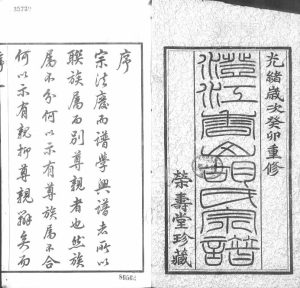 光緒歲次癸卯重修
氏宗譜
榮壽堂珍藏
序
宗法廢而譜學興譜者所以
聯族屬而別尊親者也然族
屬不分何以示有尊族屬不合
何以示有親抑尊親辨矣而